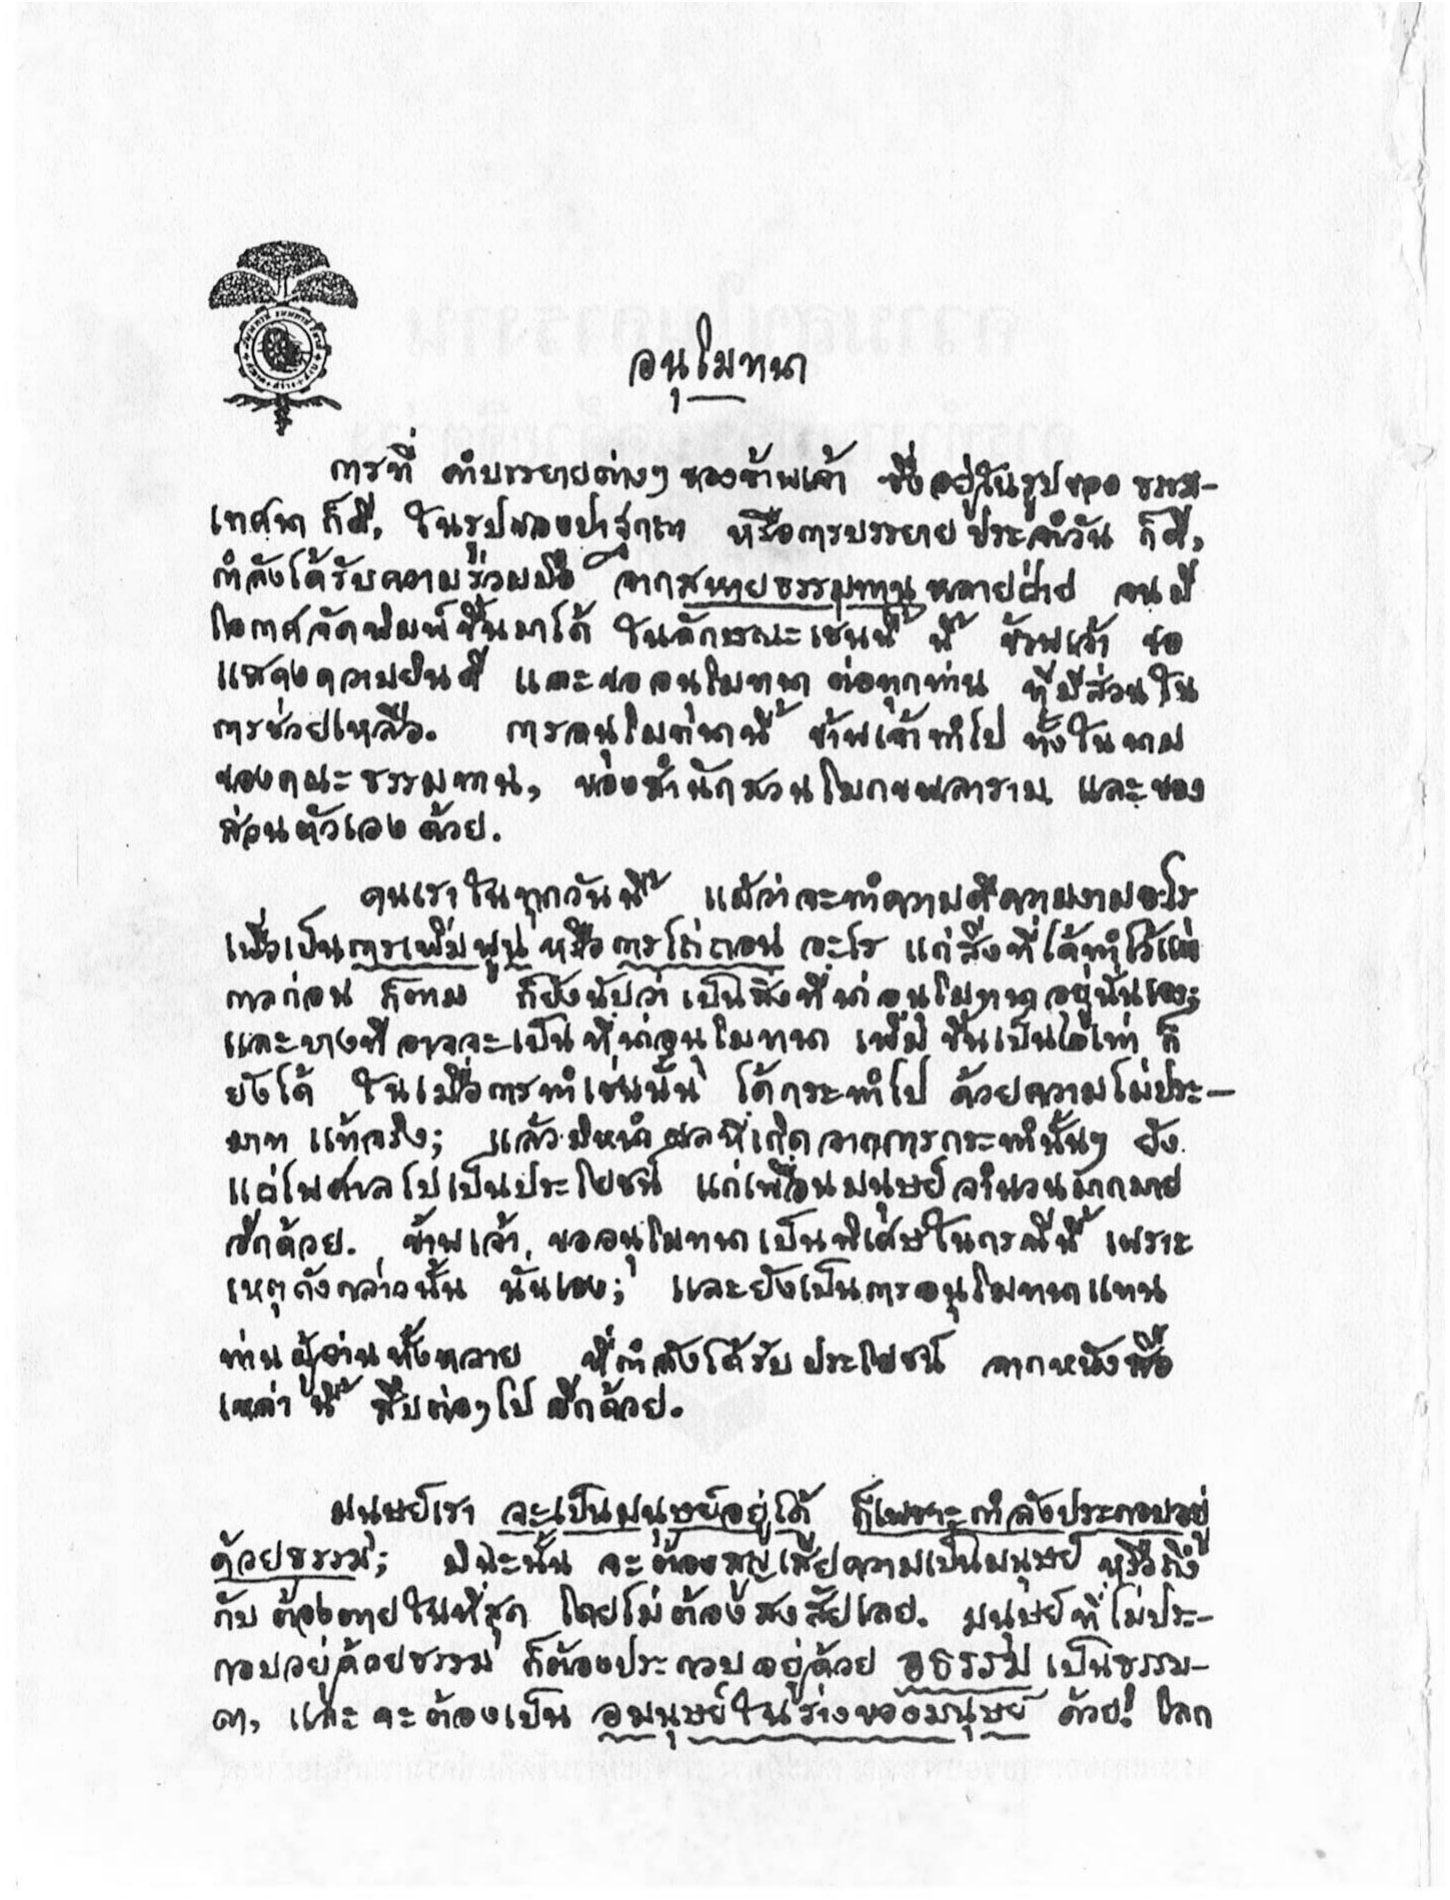 อนุโมทนา
การที่ คำบรรยายต่างๆ ของข้าพเจ้า ซึ่งอยู่ในรูปของ ธรรม-
เทศนา ก็ดี, ในรูปของปาฐกถา หรือการบรรยาย ประจำวัน ก็ดี,
กำลังได้รับความร่วมมือ จากสหายธรรมทาน หลายฝ่าย จนมี
โอกาศจัดพิมพ์ขึ้นมาได้ ในลักษณะเช่นนี้ นี้ ข้าพเจ้า ขอ
แสดงความยินดี และขออนุโมทนา ต่อทุกท่าน ที่มีส่วนใน
การช่วยเหลือ. การอนุโมทนานี้ ข้าพเจ้าทำไป ทั้งในนาม
ของคณะธรรมทาน, ของสำนักสวนโมกขพลาราม และของ
ส่วนตัวเอง ด้วย.
คนเราในทุกวันนี้ แม้ว่าจะทำความดีความงามอะไร
เพื่อเป็นการเพิ่มพูน หรือการไถ่ถอน อะไร แก่สิ่งที่ได้ทำไว้แต่
กาลก่อน ก็ตาม ก็ยังนับว่า เป็นสิ่งที่น่าอนุโมทนาอยู่นั่นเอง;
และบางทีอาจจะเป็นที่น่าอนุโมทนา เพิ่มขึ้นเป็นไหนๆ ก็
ยังได้ ในเมื่อการทำเช่นนั้น ได้กระทำไป ด้วยความไม่ประ-
มาท แท้จริง; แล้วมิหนำ ผลที่เกิดจากการกระทำนั้นๆ ยัง
แผ่ไพศาลไปเป็นประโยชน์ แก่เพื่อนมนุษย์จำนวนมากมาย
อีกด้วย. ข้าพเจ้า ขออนุโมทนาเป็นพิเศษในกรณีนี้ เพราะ
เหตุดังกล่าวนั้น นั่นเอง; และยังเป็นการอนุโมทนาแทน
ท่านผู้อ่านทั้งหลาย ที่กำลังได้รับประโยชน์ จากหนังสือ
เหล่านี้ สืบต่อๆไป อีกด้วย.
มนุษย์เรา จะเป็นมนุษย์อยู่ได้ ก็เพราะกำลังประกอบอยู่
ด้วยธรรม; มิฉะนั้น จะต้องสูญเสียความเป็นมนุษย์ หรือถึง
กับต้องตายในที่สุด โดยไม่ต้องสงสัยเลย. มนุษย์ที่ไม่ประ-
กอบอยู่ด้วยธรรม ก็ต้องประกอบอยู่ด้วย อธรรม เป็นธรรม-
ดา, และ จะต้องเป็น อมนุษย์ในร่างของมนุษย์ ด้วย! โลก